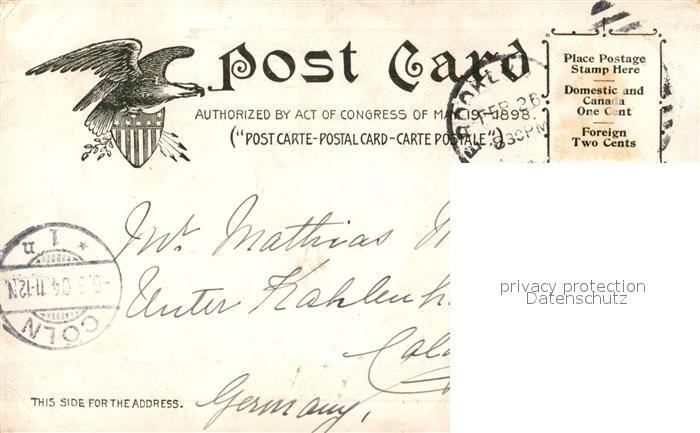 Post Card
Place Postage
Stamp Here
Domestic and
Canada
One Cent
Foreign
Two Cents
AUTHORIZED BY ACT OF CONGRESS OF MAY 19, 1898.
("POST CARTE-POSTAL CARD-CARTE POSTALE")
FEB 26
830PM
Mr. Mathias
Unter
Germany,
1 n
-6.3.04.11-12N.
CÖLN
privacy protection
Datenschutz
THIS SIDE FOR THE ADDRESS.